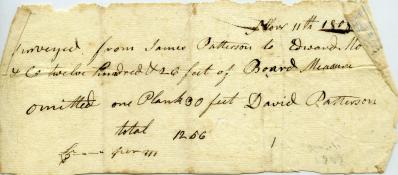 Novr 11th
Surveyed from James Patterson to Edward
& Co twelve hundred & 26 feet of Board Measure
omitted one Plank 30 feet David Patterson
total 1256